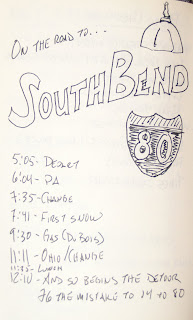 ON THE ROAD TO...
SOUTHBEND
80
5:05 - DEPART
6:04 - PA
7:35 - CHANGE
7:41 - FIRST SNOW
9:30 - GAS (DUBOIS)
11:11 - OHIO/CHANGE
LUNCH
12:10 - AND SO BEGINS THE DETOUR
76 THE MISTAKE TO 14 TO 80